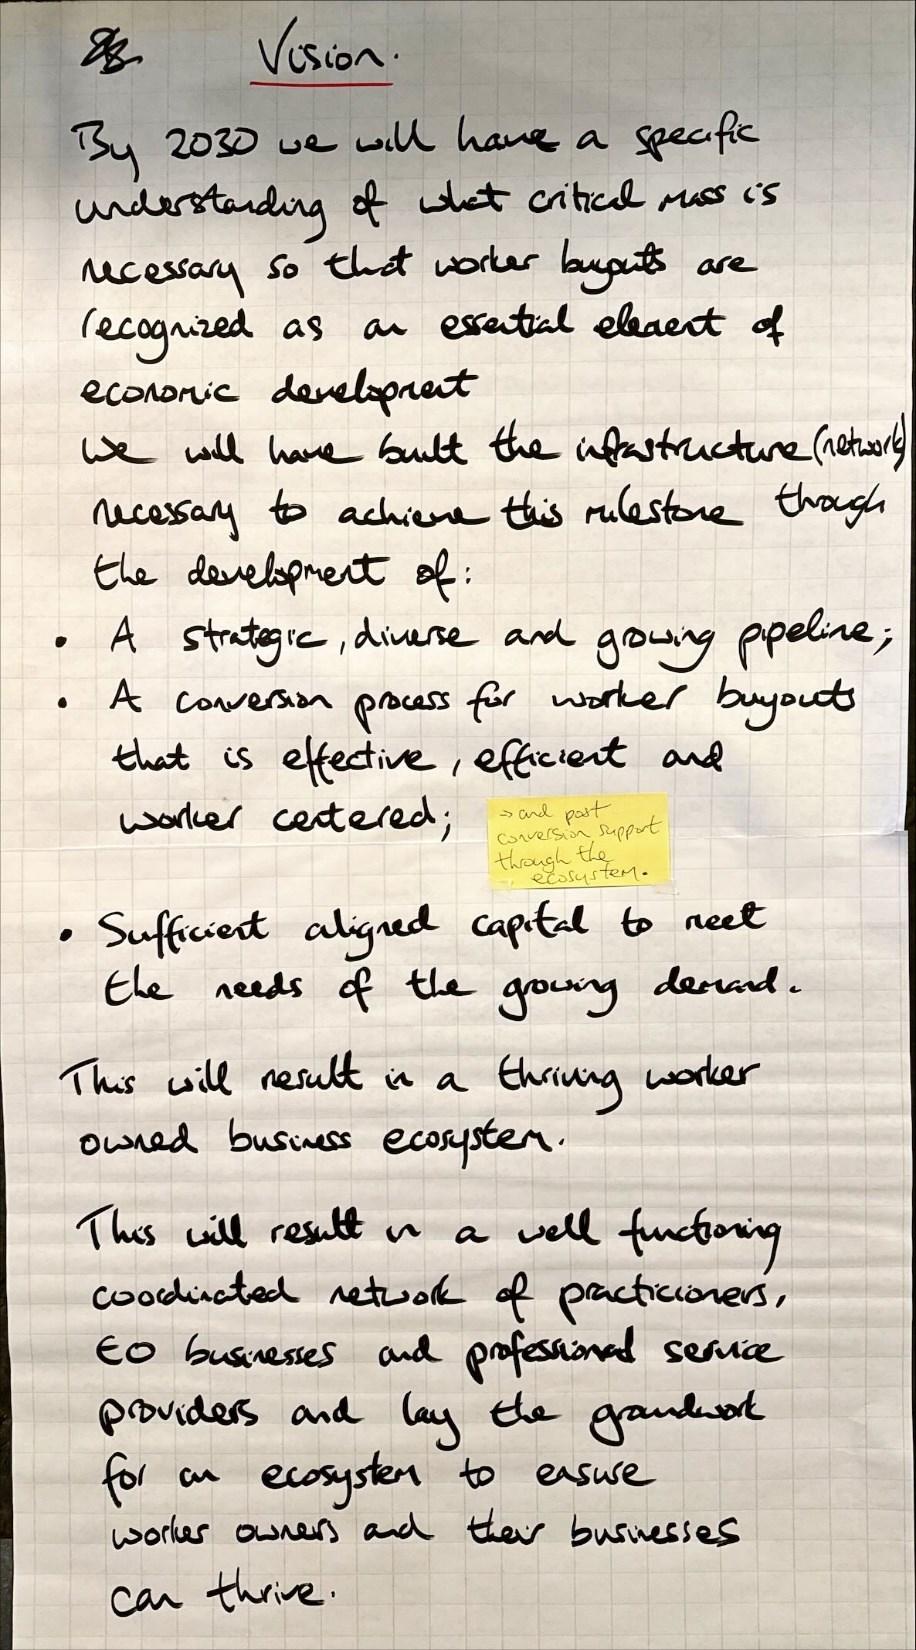 Vision.
By 2030 we will have a specific
understanding of what critical mass is
necessary so that worker buyouts are
recognized as an essential element of
economic development
We will have built the infrastructure (network)
necessary to achieve this milestone through
the development of:
• A strategic, diverse and growing pipeline;
• A conversion process for worker buyouts
that is effective, efficient and
worker centered;
→ and post
conversion support
through the
ecosystem.
• Sufficient aligned capital to meet
the needs of the growing demand.
This will result in a thriving worker
owned business ecosystem.
This will result in a well functioning
coordinated network of practicioners,
EO businesses and professional service
providers and lay the groundwork
for an ecosystem to ensure
worker owners and their businesses
can thrive.